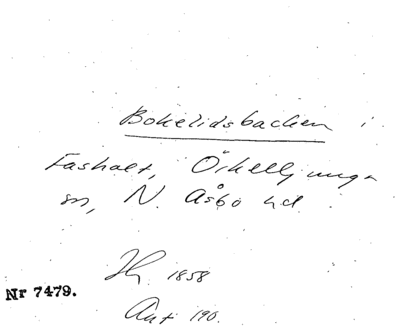 Bokelidsbacken i
Fasholt, Örkelljunga
sn, N. Åsbo hd
Hg 1858
Nr 7479.
Ant 190.